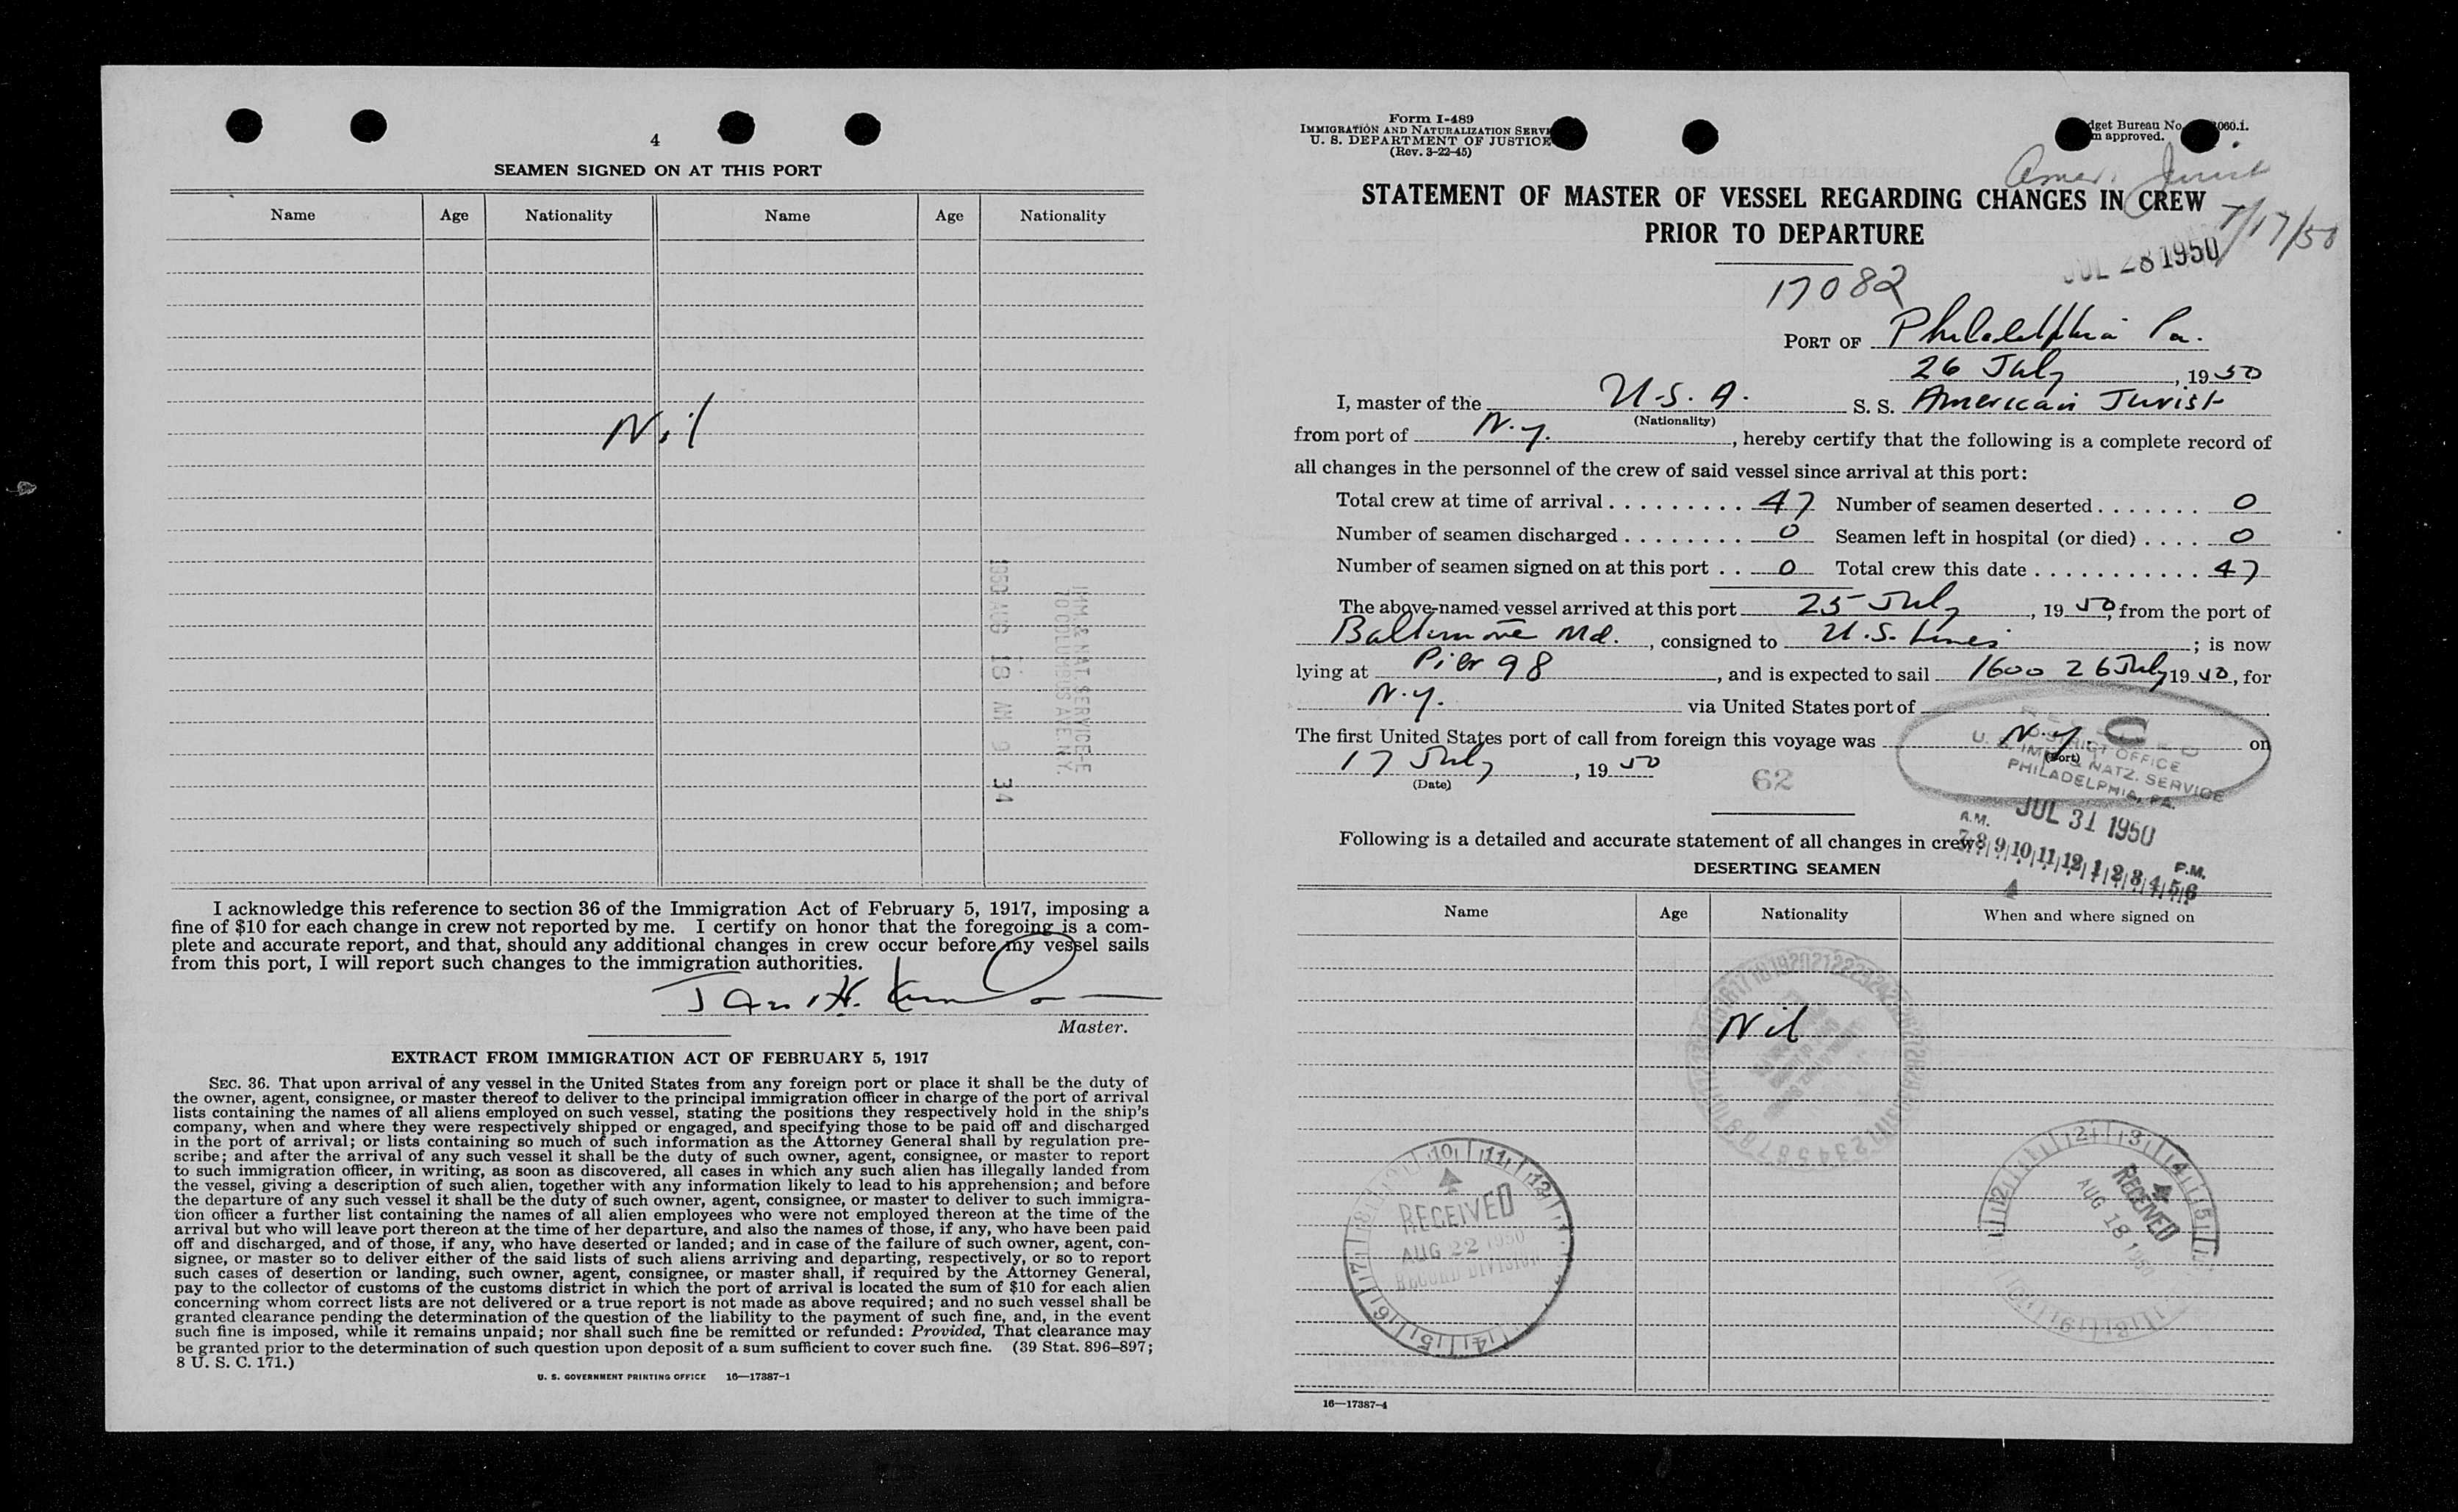 4
SEAMEN SIGNED ON AT THIS PORT
Name Age Nationality Name Age Nationality
Nil
IMM. & NAT. SERVICE-E
70 COLUMBUS AVE. N.Y.
1950 AUG 18 AM 9 34
I acknowledge this reference to section 36 of the Immigration Act of February 5, 1917, imposing a
fine of $10 for each change in crew not reported by me. I certify on honor that the foregoing is a com-
plete and accurate report, and that, should any additional changes in crew occur before my vessel sails
from this port, I will report such changes to the immigration authorities.
Master.
EXTRACT FROM IMMIGRATION ACT OF FEBRUARY 5, 1917
SEC. 36. That upon arrival of any vessel in the United States from any foreign port or place it shall be the duty of
the owner, agent, consignee, or master thereof to deliver to the principal immigration officer in charge of the port of arrival
lists containing the names of all aliens employed on such vessel, stating the positions they respectively hold in the ship's
company, when and where they were respectively shipped or engaged, and specifying those to be paid off and discharged
in the port of arrival; or lists containing so much of such information as the Attorney General shall by regulation pre-
scribe; and after the arrival of any such vessel it shall be the duty of such owner, agent, consignee, or master to report
to such immigration officer, in writing, as soon as discovered, all cases in which any such alien has illegally landed from
the vessel, giving a description of such alien, together with any information likely to lead to his apprehension; and before
the departure of any such vessel it shall be the duty of such owner, agent, consignee, or master to deliver to such immigra-
tion officer a further list containing the names of all alien employees who were not employed thereon at the time of the
arrival but who will leave port thereon at the time of her departure, and also the names of those, if any, who have been paid
off and discharged, and of those, if any, who have deserted or landed; and in case of the failure of such owner, agent, con-
signee, or master so to deliver either of the said lists of such aliens arriving and departing, respectively, or so to report
such cases of desertion or landing, such owner, agent, consignee, or master shall, if required by the Attorney General,
pay to the collector of customs of the customs district in which the port of arrival is located the sum of $10 for each alien
concerning whom correct lists are not delivered or a true report is not made as above required; and no such vessel shall be
granted clearance pending the determination of the question of the liability to the payment of such fine, and, in the event
such fine is imposed, while it remains unpaid; nor shall such fine be remitted or refunded: Provided, That clearance may
be granted prior to the determination of such question upon deposit of a sum sufficient to cover such fine. (39 Stat. 896–897;
8 U. S. C. 171.)
U. S. GOVERNMENT PRINTING OFFICE 16—17387-1
Form I-489
IMMIGRATION AND NATURALIZATION SERVI
U. S. DEPARTMENT OF JUSTICE
(Rev. 3-22-45)
dget Bureau No. 060.1.
m approved.
Amer. Jurist
7/17/50
STATEMENT OF MASTER OF VESSEL REGARDING CHANGES IN CREW
PRIOR TO DEPARTURE
JUL 28 1950
17082
PORT OF Philadelphia Pa.
26 July, 1950
I, master of the U.S.A. S. S. American Jurist
(Nationality)
from port of N.Y., hereby certify that the following is a complete record of
all changes in the personnel of the crew of said vessel since arrival at this port:
Total crew at time of arrival 47 Number of seamen deserted 0
Number of seamen discharged 0 Seamen left in hospital (or died) 0
Number of seamen signed on at this port 0 Total crew this date 47
The above-named vessel arrived at this port 25 July, 1950, from the port of
Baltimore Md., consigned to U.S. Lines; is now
lying at Pier 98, and is expected to sail 1600 26 July 1950, for
N.Y. via United States port of
The first United States port of call from foreign this voyage was N.Y. on
(Port)
17 July, 1950
(Date)
62
RECEIVED
DISTRICT OFFICE
U. S. IMM. & NATZ. SERVICE
PHILADELPHIA, PA.
JUL 31 1950
A.M. 7 8 9 10 11 12 1 2 3 4 5 6 P.M.
Following is a detailed and accurate statement of all changes in crew:
DESERTING SEAMEN
Name Age Nationality When and where signed on
Nil
RECEIVED
AUG 22 1950
RECORD DIVISION
RECEIVED
AUG 18 1950
16—17387-4